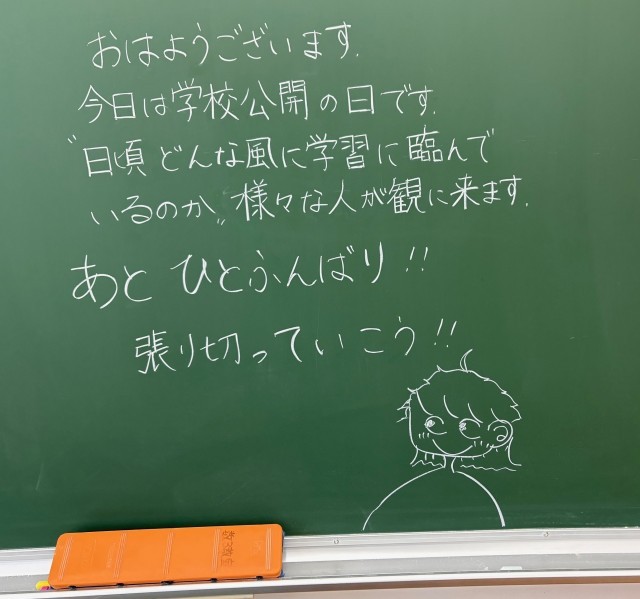 おはようございます.
今日は学校公開の日です.
〝日頃どんな風に学習に臨んで
いるのか〟様々な人が観に来ます.
あとひとふんばり!!
張り切っていこう!!